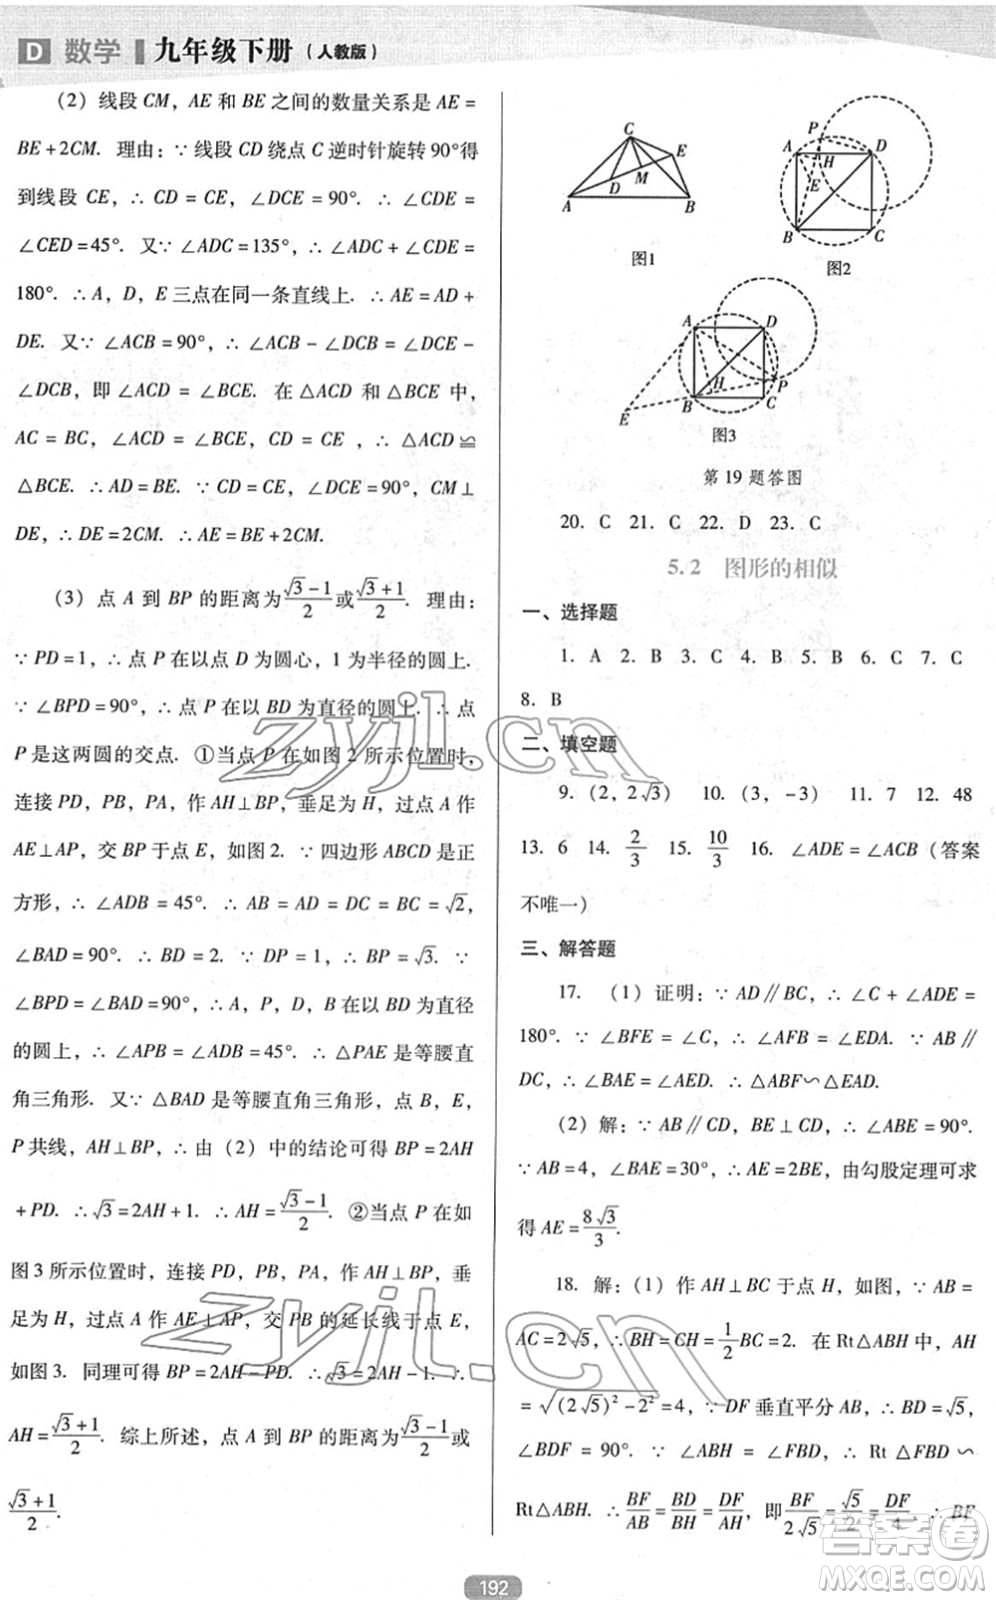 D 数学 九年级下册（人教版）
(2) 线段 CM，AE 和 BE 之间的数量关系是 AE =
BE + 2CM. 理由：∵ 线段 CD 绕点 C 逆时针旋转 90°得
到线段 CE，∴ CD = CE，∠DCE = 90°. ∴ ∠CDE =
∠CED = 45°. 又∵ ∠ADC = 135°，∴ ∠ADC + ∠CDE =
180°. ∴ A，D，E 三点在同一条直线上. ∴ AE = AD +
DE. 又∵ ∠ACB = 90°，∴ ∠ACB - ∠DCB = ∠DCE -
∠DCB，即 ∠ACD = ∠BCE. 在 △ACD 和 △BCE 中，
AC = BC，∠ACD = ∠BCE，CD = CE ，∴ △ACD ≌
△BCE. ∴ AD = BE. ∵ CD = CE，∠DCE = 90°，CM ⊥
DE，∴ DE = 2CM. ∴ AE = BE + 2CM.
(3) 点 A 到 BP 的距离为 (√3 - 1)/2 或 (√3 + 1)/2. 理由：
∵ PD = 1，∴ 点 P 在以点 D 为圆心，1 为半径的圆上.
∵ ∠BPD = 90°，∴ 点 P 在以 BD 为直径的圆上. ∴ 点
P 是这两圆的交点. ①当点 P 在如图 2 所示位置时，
连接 PD，PB，PA，作 AH⊥BP，垂足为 H，过点 A 作
AE⊥AP，交 BP 于点 E，如图 2. ∵ 四边形 ABCD 是正
方形，∴ ∠ADB = 45°. ∴ AB = AD = DC = BC = √2，
∠BAD = 90°. ∴ BD = 2. ∵ DP = 1，∴ BP = √3. ∵
∠BPD = ∠BAD = 90°，∴ A，P，D，B 在以 BD 为直径
的圆上，∴ ∠APB = ∠ADB = 45°. ∴ △PAE 是等腰直
角三角形. 又∵ △BAD 是等腰直角三角形，点 B，E，
P 共线，AH⊥BP，∴ 由（2）中的结论可得 BP = 2AH
+ PD. ∴ √3 = 2AH + 1. ∴ AH = (√3 - 1)/2. ②当点 P 在如
图 3 所示位置时，连接 PD，PB，PA，作 AH ⊥ BP，垂
足为 H，过点 A 作 AE ⊥ AP，交 PB 的延长线于点 E，
如图 3. 同理可得 BP = 2AH - PD. ∴ √3 = 2AH - 1. ∴
AH = (√3 + 1)/2. 综上所述，点 A 到 BP 的距离为 (√3 - 1)/2 或
(√3 + 1)/2.
C E D M A B
图1
P A D H E B C
图2
A D H P B C E
图3
第 19 题答图
20. C 21. C 22. D 23. C
5.2 图形的相似
一、选择题
1. A 2. B 3. C 4. B 5. B 6. C 7. C
8. B
二、填空题
9. (2，2√3) 10. (3，-3) 11. 7 12. 48
13. 6 14. 2/3 15. 10/3 16. ∠ADE = ∠ACB（答案
不唯一）
三、解答题
17. (1) 证明：∵ AD∥BC，∴ ∠C + ∠ADE =
180°. ∵ ∠BFE = ∠C，∴ ∠AFB = ∠EDA. ∵ AB∥
DC，∴ ∠BAE = ∠AED. ∴ △ABF∽△EAD.
(2) 解：∵ AB∥CD，BE⊥CD，∴ ∠ABE = 90°.
∵ AB = 4，∠BAE = 30°，∴ AE = 2BE，由勾股定理可求
得 AE = 8√3/3.
18. 解：(1) 作 AH⊥BC 于点 H，如图，∵ AB =
AC = 2√5，∴ BH = CH = 1/2 BC = 2. 在 Rt△ABH 中，AH
= √((2√5)² - 2²) = 4，∵ DF 垂直平分 AB，∴ BD = √5，
∠BDF = 90°. ∵ ∠ABH = ∠FBD，∴ Rt △FBD ∽
Rt△ABH. ∴ BF/AB = BD/BH = DF/AH，即 BF/(2√5) = √5/2 = DF/4. ∴ BF
192
zyjl.cn
zyjl.cn
答案圈
MXQE.COM